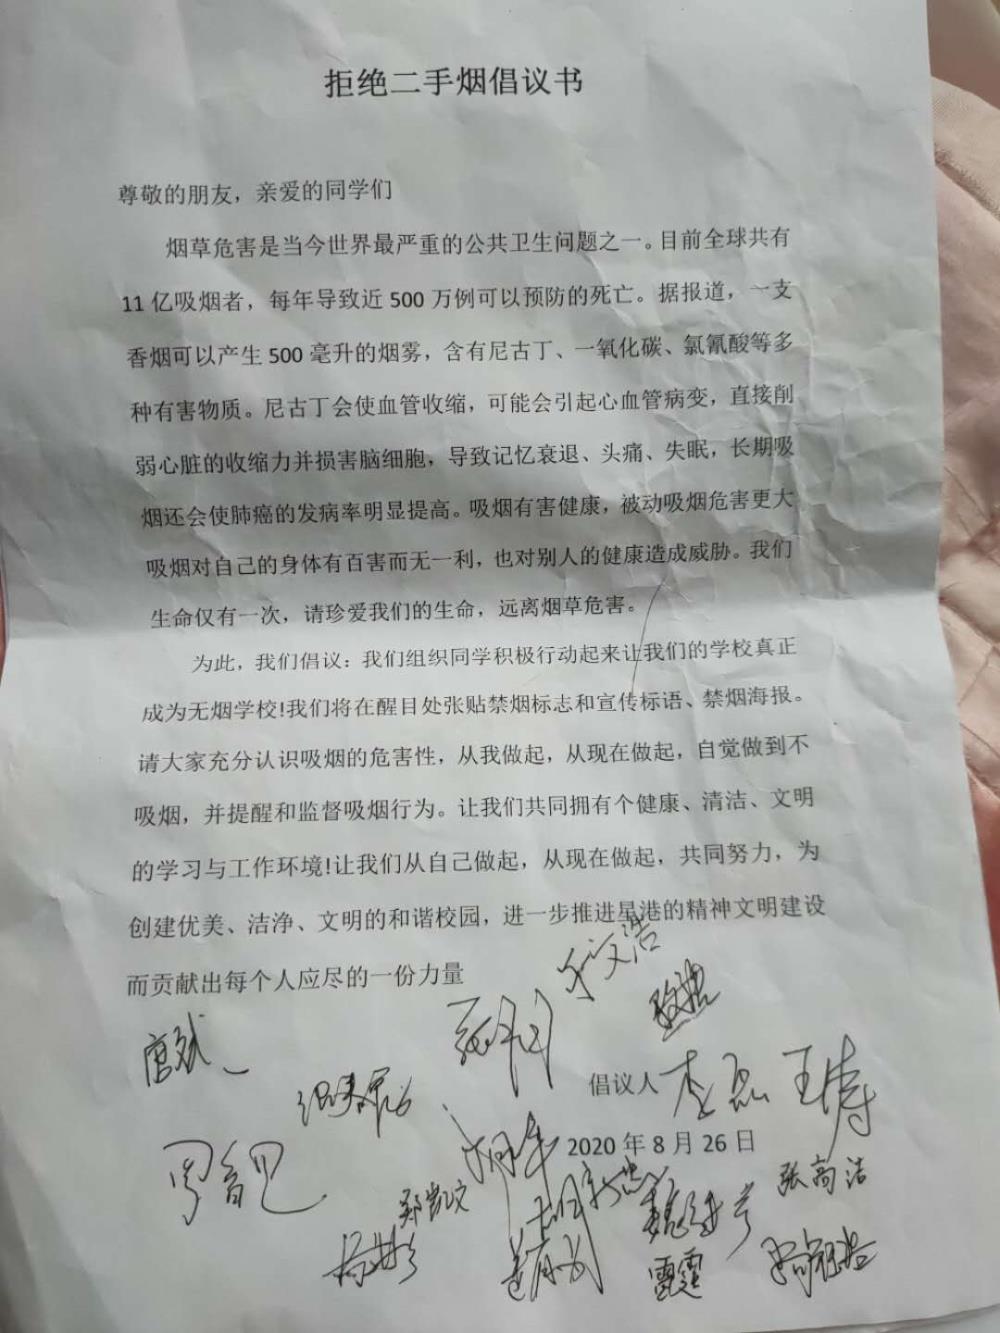 拒绝二手烟倡议书
尊敬的朋友，亲爱的同学们
烟草危害是当今世界最严重的公共卫生问题之一。目前全球共有
11 亿吸烟者，每年导致近 500 万例可以预防的死亡。据报道，一支
香烟可以产生 500 毫升的烟雾，含有尼古丁、一氧化碳、氯氰酸等多
种有害物质。尼古丁会使血管收缩，可能会引起心血管病变，直接削
弱心脏的收缩力并损害脑细胞，导致记忆衰退、头痛、失眠，长期吸
烟还会使肺癌的发病率明显提高。吸烟有害健康，被动吸烟危害更大
吸烟对自己的身体有百害而无一利，也对别人的健康造成威胁。我们
生命仅有一次，请珍爱我们的生命，远离烟草危害。
为此，我们倡议：我们组织同学积极行动起来让我们的学校真正
成为无烟学校!我们将在醒目处张贴禁烟标志和宣传标语、禁烟海报。
请大家充分认识吸烟的危害性，从我做起，从现在做起，自觉做到不
吸烟，并提醒和监督吸烟行为。让我们共同拥有个健康、清洁、文明
的学习与工作环境!让我们从自己做起，从现在做起，共同努力，为
创建优美、洁净、文明的和谐校园，进一步推进星港的精神文明建设
而贡献出每个人应尽的一份力量
唐斌
倡议人 李磊 王涛
2020 年 8 月 26 日
张高洁
郑凯文